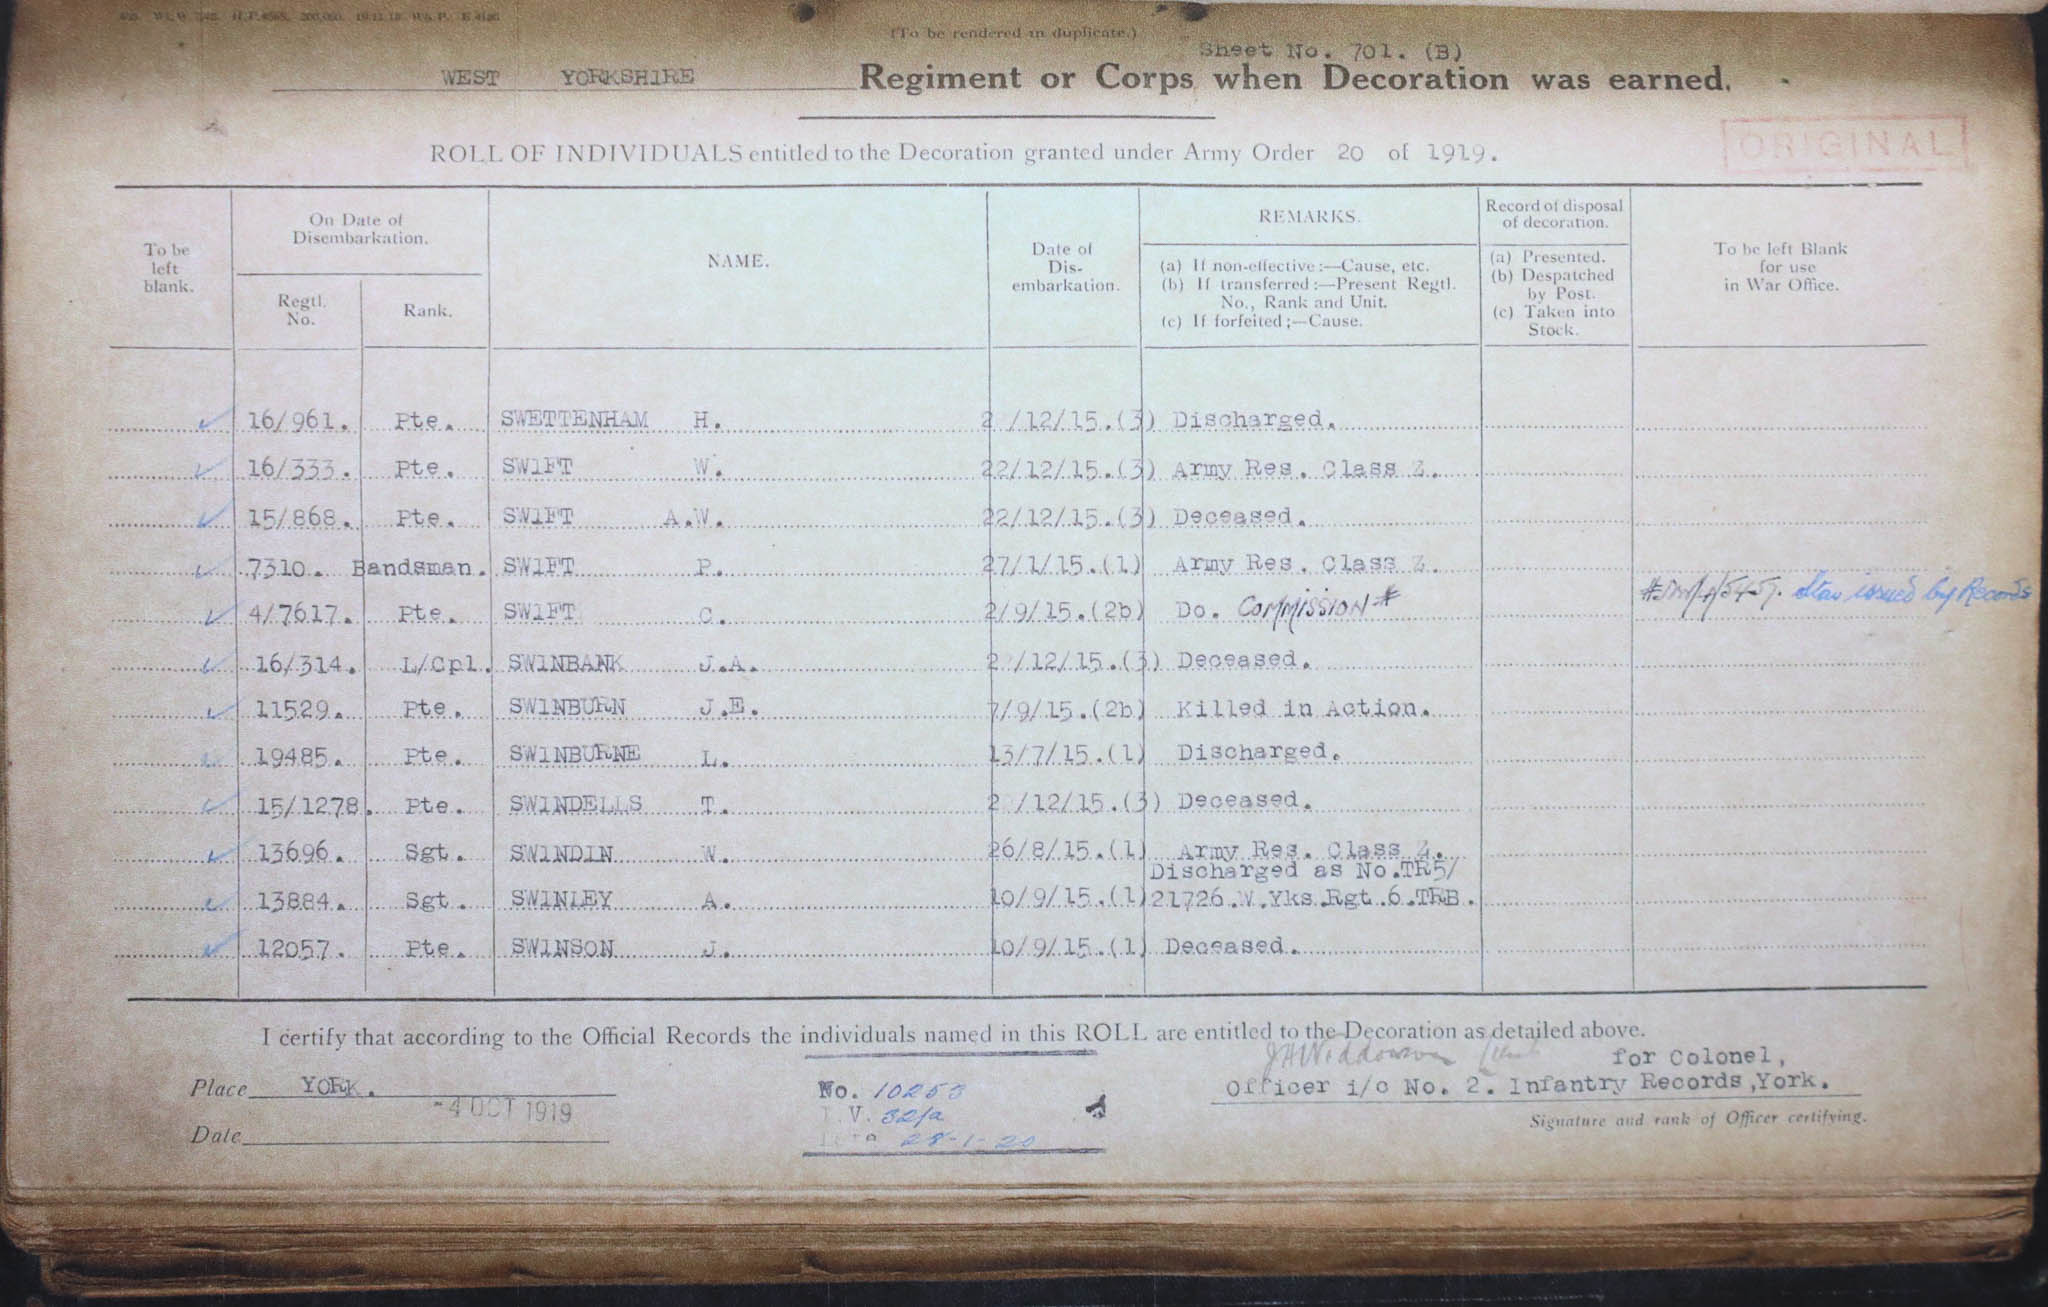 (To be rendered in duplicate.)
Sheet No. 701. (B)
WEST YORKSHIRE Regiment or Corps when Decoration was earned.
ORIGINAL
ROLL OF INDIVIDUALS entitled to the Decoration granted under Army Order 20 of 1919.
To be left blank.
On Date of Disembarkation.
Regtl. No.
Rank.
NAME.
Date of Dis-embarkation.
REMARKS.
(a) If non-effective:—Cause, etc.
(b) If transferred:—Present Regtl. No., Rank and Unit.
(c) If forfeited;—Cause.
Record of disposal of decoration.
(a) Presented.
(b) Despatched by Post.
(c) Taken into Stock.
To be left Blank for use in War Office.
16/961. Pte. SWETTENHAM H. 2 /12/15.(3) Discharged.
16/333. Pte. SWIFT W. 22/12/15.(3) Army Res. Class Z.
15/868. Pte. SWIFT A.W. 22/12/15.(3) Deceased.
7310. Bandsman. SWIFT P. 27/1/15.(1) Army Res. Class Z.
4/7617. Pte. SWIFT C. 2/9/15.(2b) Do. COMMISSION # Star issued by Records
16/314. L/Cpl. SWINBANK J.A. 2 /12/15.(3) Deceased.
11529. Pte. SWINBURN J.E. 7/9/15.(2b) Killed in Action.
19485. Pte. SWINBURNE L. 13/7/15.(1) Discharged.
15/1278. Pte. SWINDELLS T. 2 /12/15.(3) Deceased.
13696. Sgt. SWINDIN W. 26/8/15.(1) Army Res. Class Z.
Discharged as No.TR5/
13884. Sgt. SWINLEY A. 10/9/15.(1) 21726.W.Yks.Rgt.6.TRB.
12057. Pte. SWINSON J. 10/9/15.(1) Deceased.
I certify that according to the Official Records the individuals named in this ROLL are entitled to the Decoration as detailed above.
for Colonel,
Place YORK. No. 10253 Officer i/c No. 2. Infantry Records,York.
-4 OCT 1919
V. 32/a
Signature and rank of Officer certifying.
Date
28-1-20